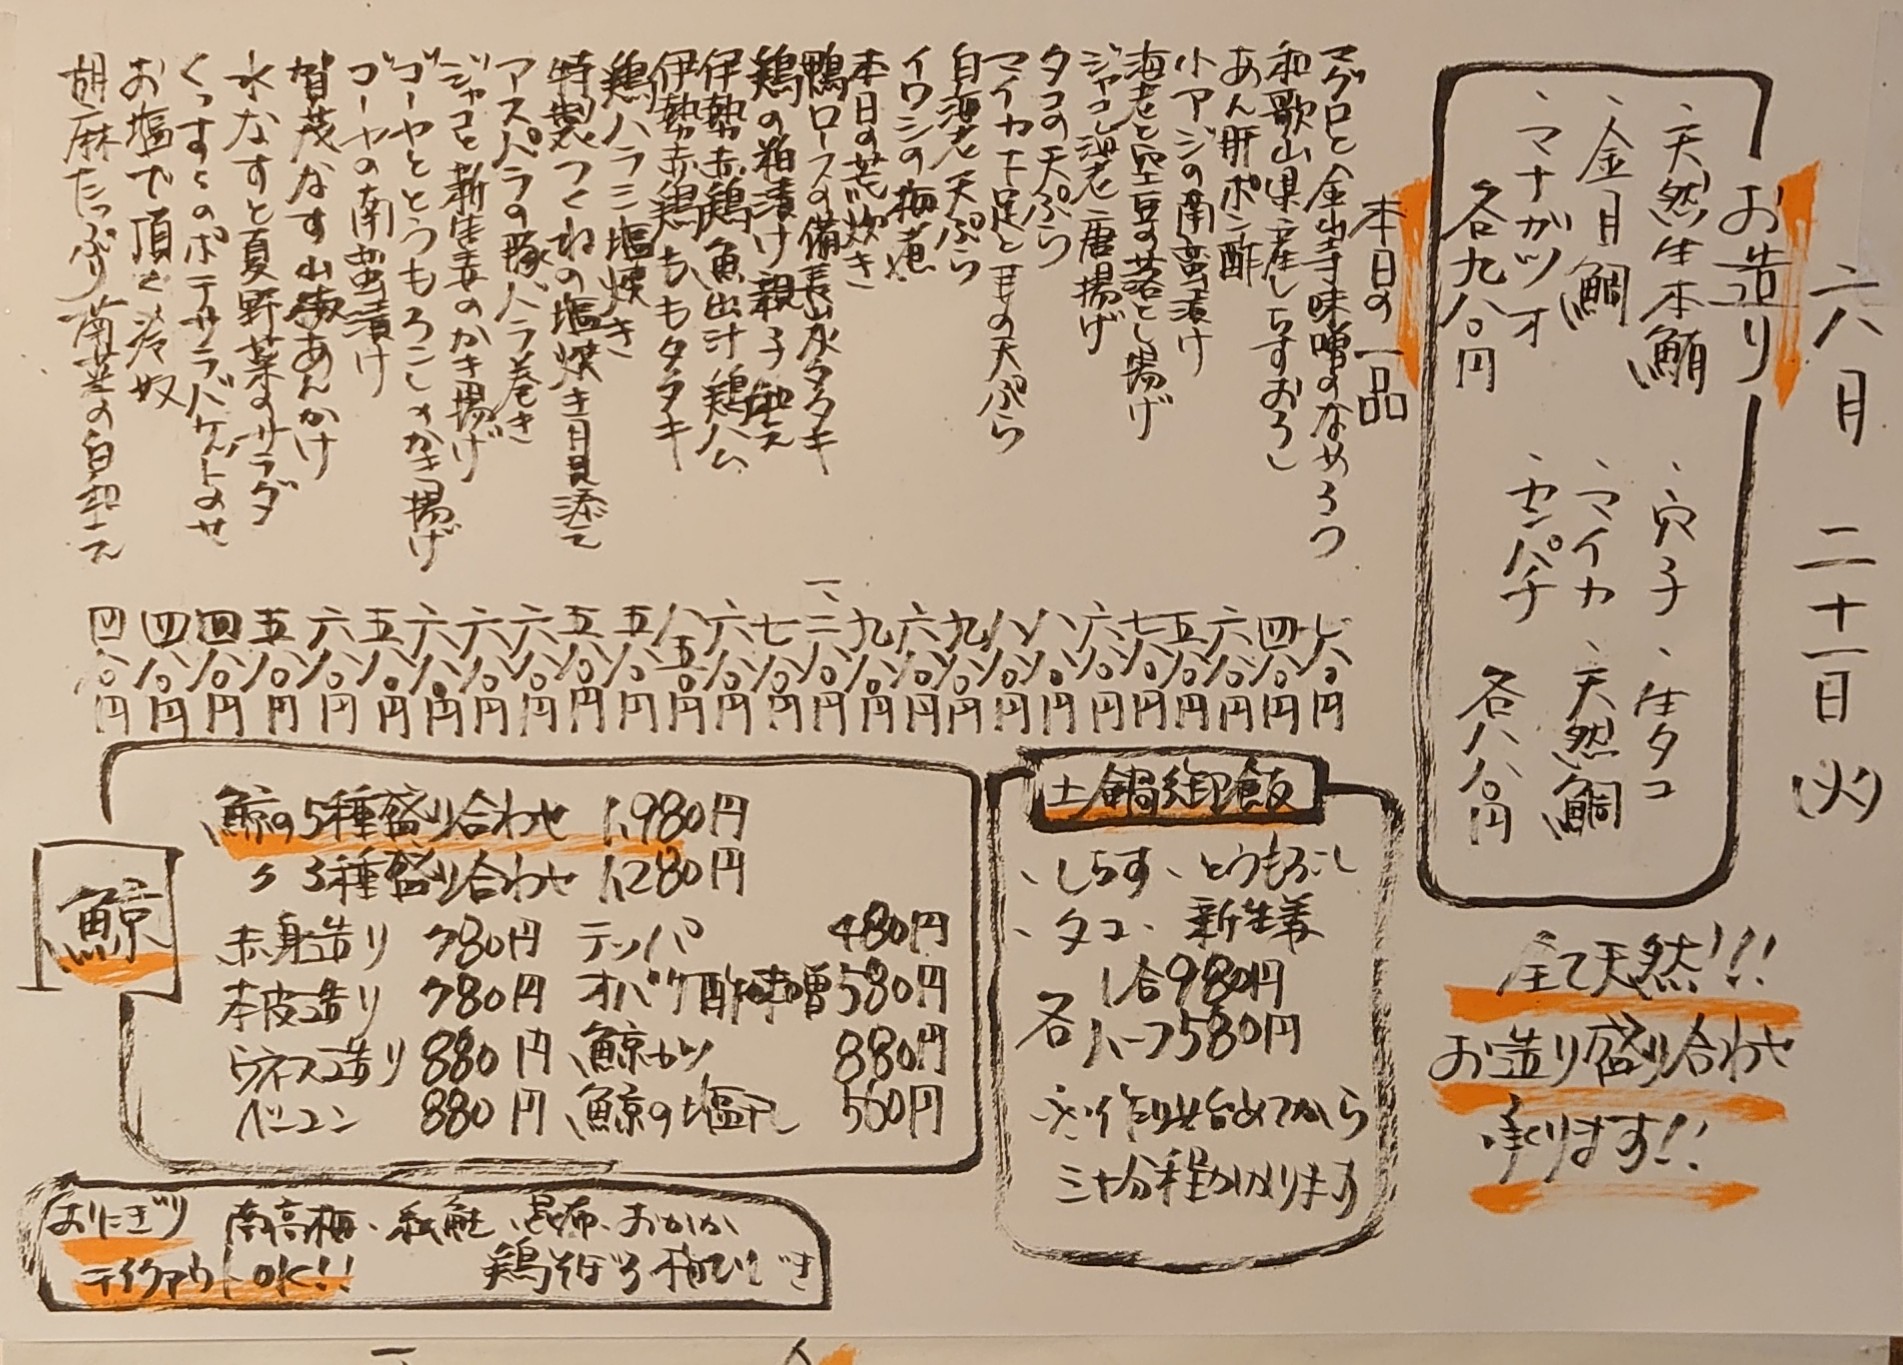 六月 二十一日(火)
お造り
、天然生本鮪
、金目鯛
、マナガツオ
各九八〇円
、穴子、生タコ
、マイカ、天然鯛
、カンパチ
各八八〇円
全て天然!!!
お造り盛り合わせ
承ります!!
本日の一品
マグロと金山寺味噌のなめろう 七八〇円
和歌山県産しらすおろし 四八〇円
あん肝ポン酢 六八〇円
小アジの南蛮漬け 五八〇円
海老と空豆の落とし揚げ 七八〇円
ジャコと海老唐揚げ 六八〇円
タコの天ぷら 八八〇円
マイカ下足と耳の天ぷら 八八〇円
白海老天ぷら 九八〇円
イワシの梅煮 六八〇円
本日の荒炊き 九八〇円
鴨ロースの備長炭水タタキ 一、二八〇円
鶏の粕漬け親子和え 七八〇円
伊勢赤鶏魚出汁鶏ハム 六八〇円
伊勢赤鶏むねももタタキ 八五〇円
鶏ハラミ塩焼き 五八〇円
特製つくねの塩焼き月見添え 五八〇円
アスパラの豚バラ巻き 六八〇円
ジャコと新生姜のかき揚げ 六八〇円
ゴーヤととうもろこしのかき揚げ 六八〇円
ゴーヤの南蛮漬け 五八〇円
賀茂なす山椒あんかけ 六八〇円
水なすと夏野菜のサラダ 五八〇円
くんすとのポテサラバゲットのせ 四八〇円
お塩で頂く冷奴 四八〇円
胡麻たっぷり 白和え 四八〇円
土鍋御飯
、しらす、とうもろこし
、タコ、新生姜
各 1合980円
ハーフ580円
※作り始めてから
三十分程かかります
鯨
鯨の5種盛り合わせ 1,980円
〃 3種盛り合わせ 1,280円
赤身造り 780円 テッパ 480円
本皮造り 780円 オバケ酢味噌 580円
ウネス造り 880円 鯨カツ 880円
ベーコン 880円 鯨の塩干し 580円
おにぎり 南高梅、紅鮭、昆布、おかか
テイクアウトOK!! 鶏そぼろ 梅ひじき